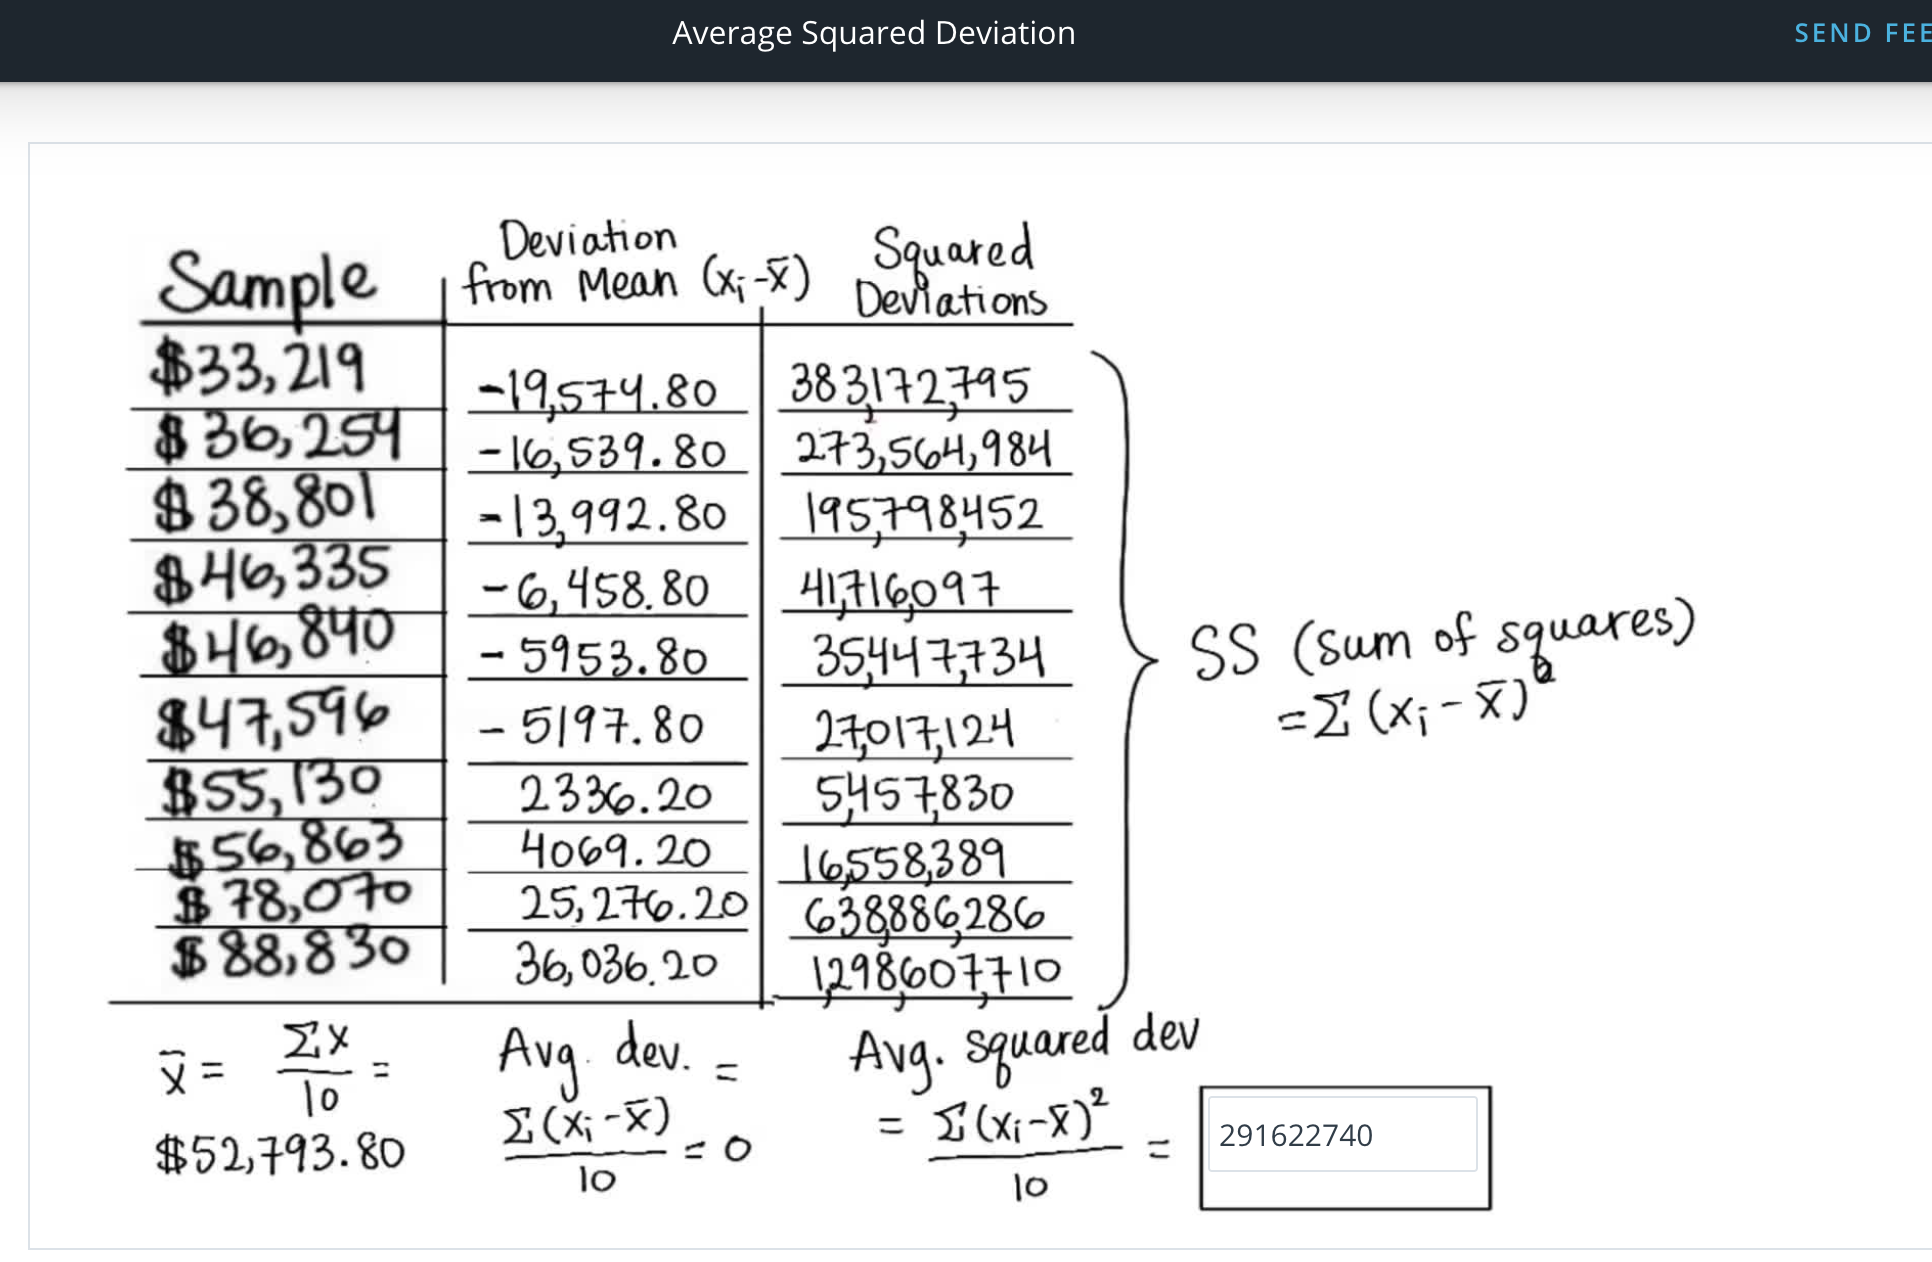 Average Squared Deviation
SEND FEE
Sample
Deviation
from Mean (xᵢ-x̄)
Squared
Deviations
$33,219 -19,574.80 383,172,795
$36,254 -16,539.80 273,564,984
$38,801 -13,992.80 195,798,452
$46,335 -6,458.80 41,716,097
$46,840 -5953.80 35,447,734
$47,596 -5197.80 27,017,124
$55,130 2336.20 5,457,830
$56,863 4069.20 16,558,389
$78,070 25,276.20 638,886,286
$88,830 36,036.20 1,298,607,710
SS (sum of squares)
=Σ(xᵢ-x̄)²
x̄ = Σx/10 =
$52,793.80
Avg. dev. =
Σ(xᵢ-x̄)/10 = 0
Avg. squared dev
= Σ(xᵢ-x̄)²/10 = 291622740